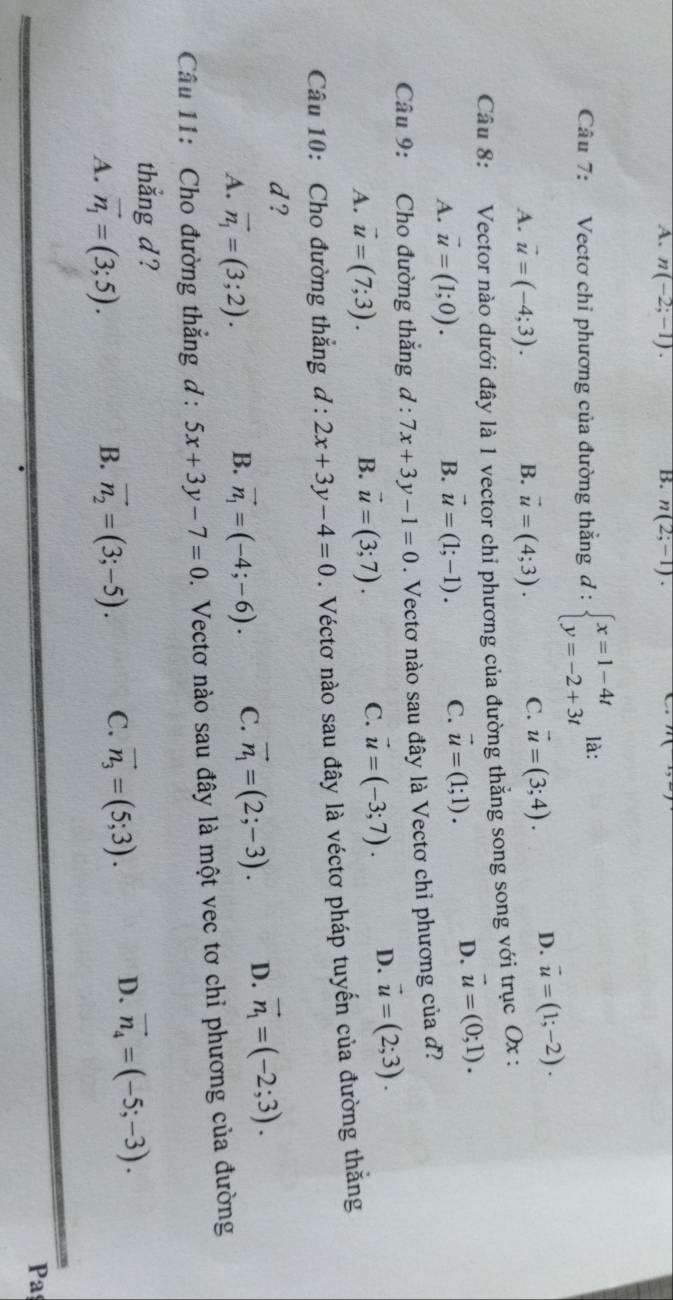 A. n(-2;-1). B. n(2;-1).
Câu 7: Vectơ chỉ phương của đường thẳng d : { x = 1 - 4t
y = -2 + 3t là:
A. u⃗ = (-4;3). B. u⃗ = (4;3). C. u⃗ = (3;4). D. u⃗ = (1;-2).
Câu 8: Vector nào dưới đây là 1 vector chỉ phương của đường thẳng song song với trục Ox :
A. u⃗ = (1;0). B. u⃗ = (1;-1). C. u⃗ = (1;1). D. u⃗ = (0;1).
Câu 9: Cho đường thẳng d : 7x + 3y - 1 = 0. Vectơ nào sau đây là Vectơ chỉ phương của d?
A. u⃗ = (7;3). B. u⃗ = (3;7). C. u⃗ = (-3;7). D. u⃗ = (2;3).
Câu 10: Cho đường thẳng d : 2x + 3y - 4 = 0. Véctơ nào sau đây là véctơ pháp tuyến của đường thẳng
d ?
A. n₁⃗ = (3;2). B. n₁⃗ = (-4;-6). C. n₁⃗ = (2;-3). D. n₁⃗ = (-2;3).
Câu 11: Cho đường thẳng d : 5x + 3y - 7 = 0. Vectơ nào sau đây là một vec tơ chỉ phương của đường
thẳng d ?
A. n₁⃗ = (3;5). B. n₂⃗ = (3;-5). C. n₃⃗ = (5;3). D. n₄⃗ = (-5;-3).